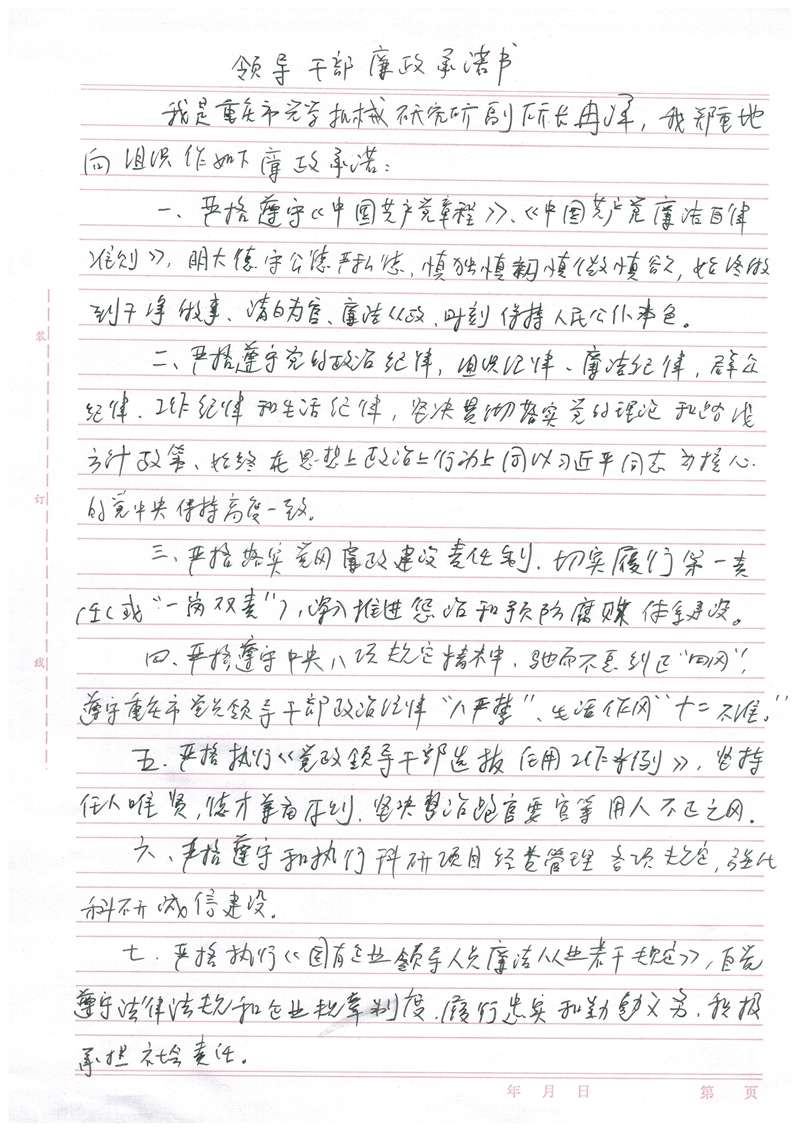 领导干部廉政承诺书
我是重庆市光学机械研究所副所长冉泽，我郑重地
向组织作如下廉政承诺：
一、严格遵守《中国共产党章程》、《中国共产党廉洁自律
准则》，明大德守公德严私德，慎独慎初慎微慎欲，始终做
到干净做事、清白为官、廉洁从政，时刻保持人民公仆本色。
二、严格遵守党的政治纪律，组织纪律、廉洁纪律，群众
纪律、工作纪律和生活纪律，坚决贯彻落实党的理论和路线
方针政策、始终在思想上政治上行动上同以习近平同志为核心
的党中央保持高度一致。
三、严格落实党风廉政建设责任制，切实履行第一责
任（或“一岗双责”），深入推进惩治和预防腐败体系建设。
四、严格遵守中央八项规定精神，驰而不息纠正“四风”，
遵守重庆市党员领导干部政治纪律“八严禁”、生活作风“十二不准。”
五、严格执行《党政领导干部选拔任用工作条例》，坚持
任人唯贤，德才兼备原则，坚决整治跑官要官等用人不正之风。
六、严格遵守和执行科研项目经费管理各项规定，强化
科研诚信建设。
七、严格执行《国有企业领导人员廉洁从业若干规定》，自觉
遵守法律法规和企业规章制度，履行忠实和勤勉义务，积极
承担社会责任。
装
订
线
年 月 日 第 页